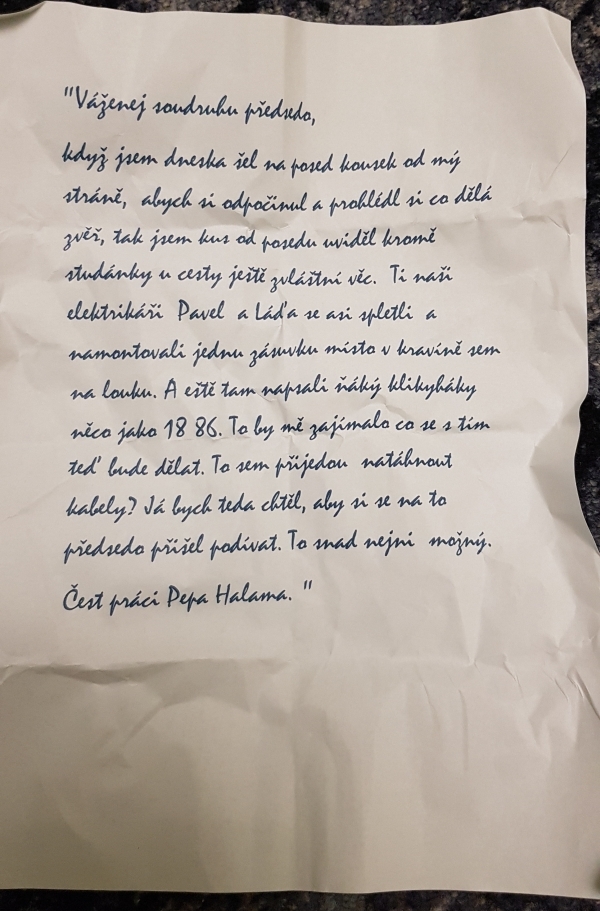 "Váženej soudruhu předsedo,
když jsem dneska šel na posed kousek od mý
stráně, abych si odpočinul a prohlédl si co dělá
zvěř, tak jsem kus od posedu uviděl kromě
studánky u cesty ještě zvláštní věc. Ti naši
elektrikáři Pavel a Láďa se asi spletli a
namontovali jednu zásuvku místo v kravíně sem
na louku. A eště tam napsali ňáký klikyháky
něco jako 18 86. To by mě zajímalo co se s tím
teď bude dělat. To sem přijedou natáhnout
kabely? Já bych teda chtěl, aby si se na to
předsedo přišel podívat. To snad nejni možný.
Čest práci Pepa Halama. "